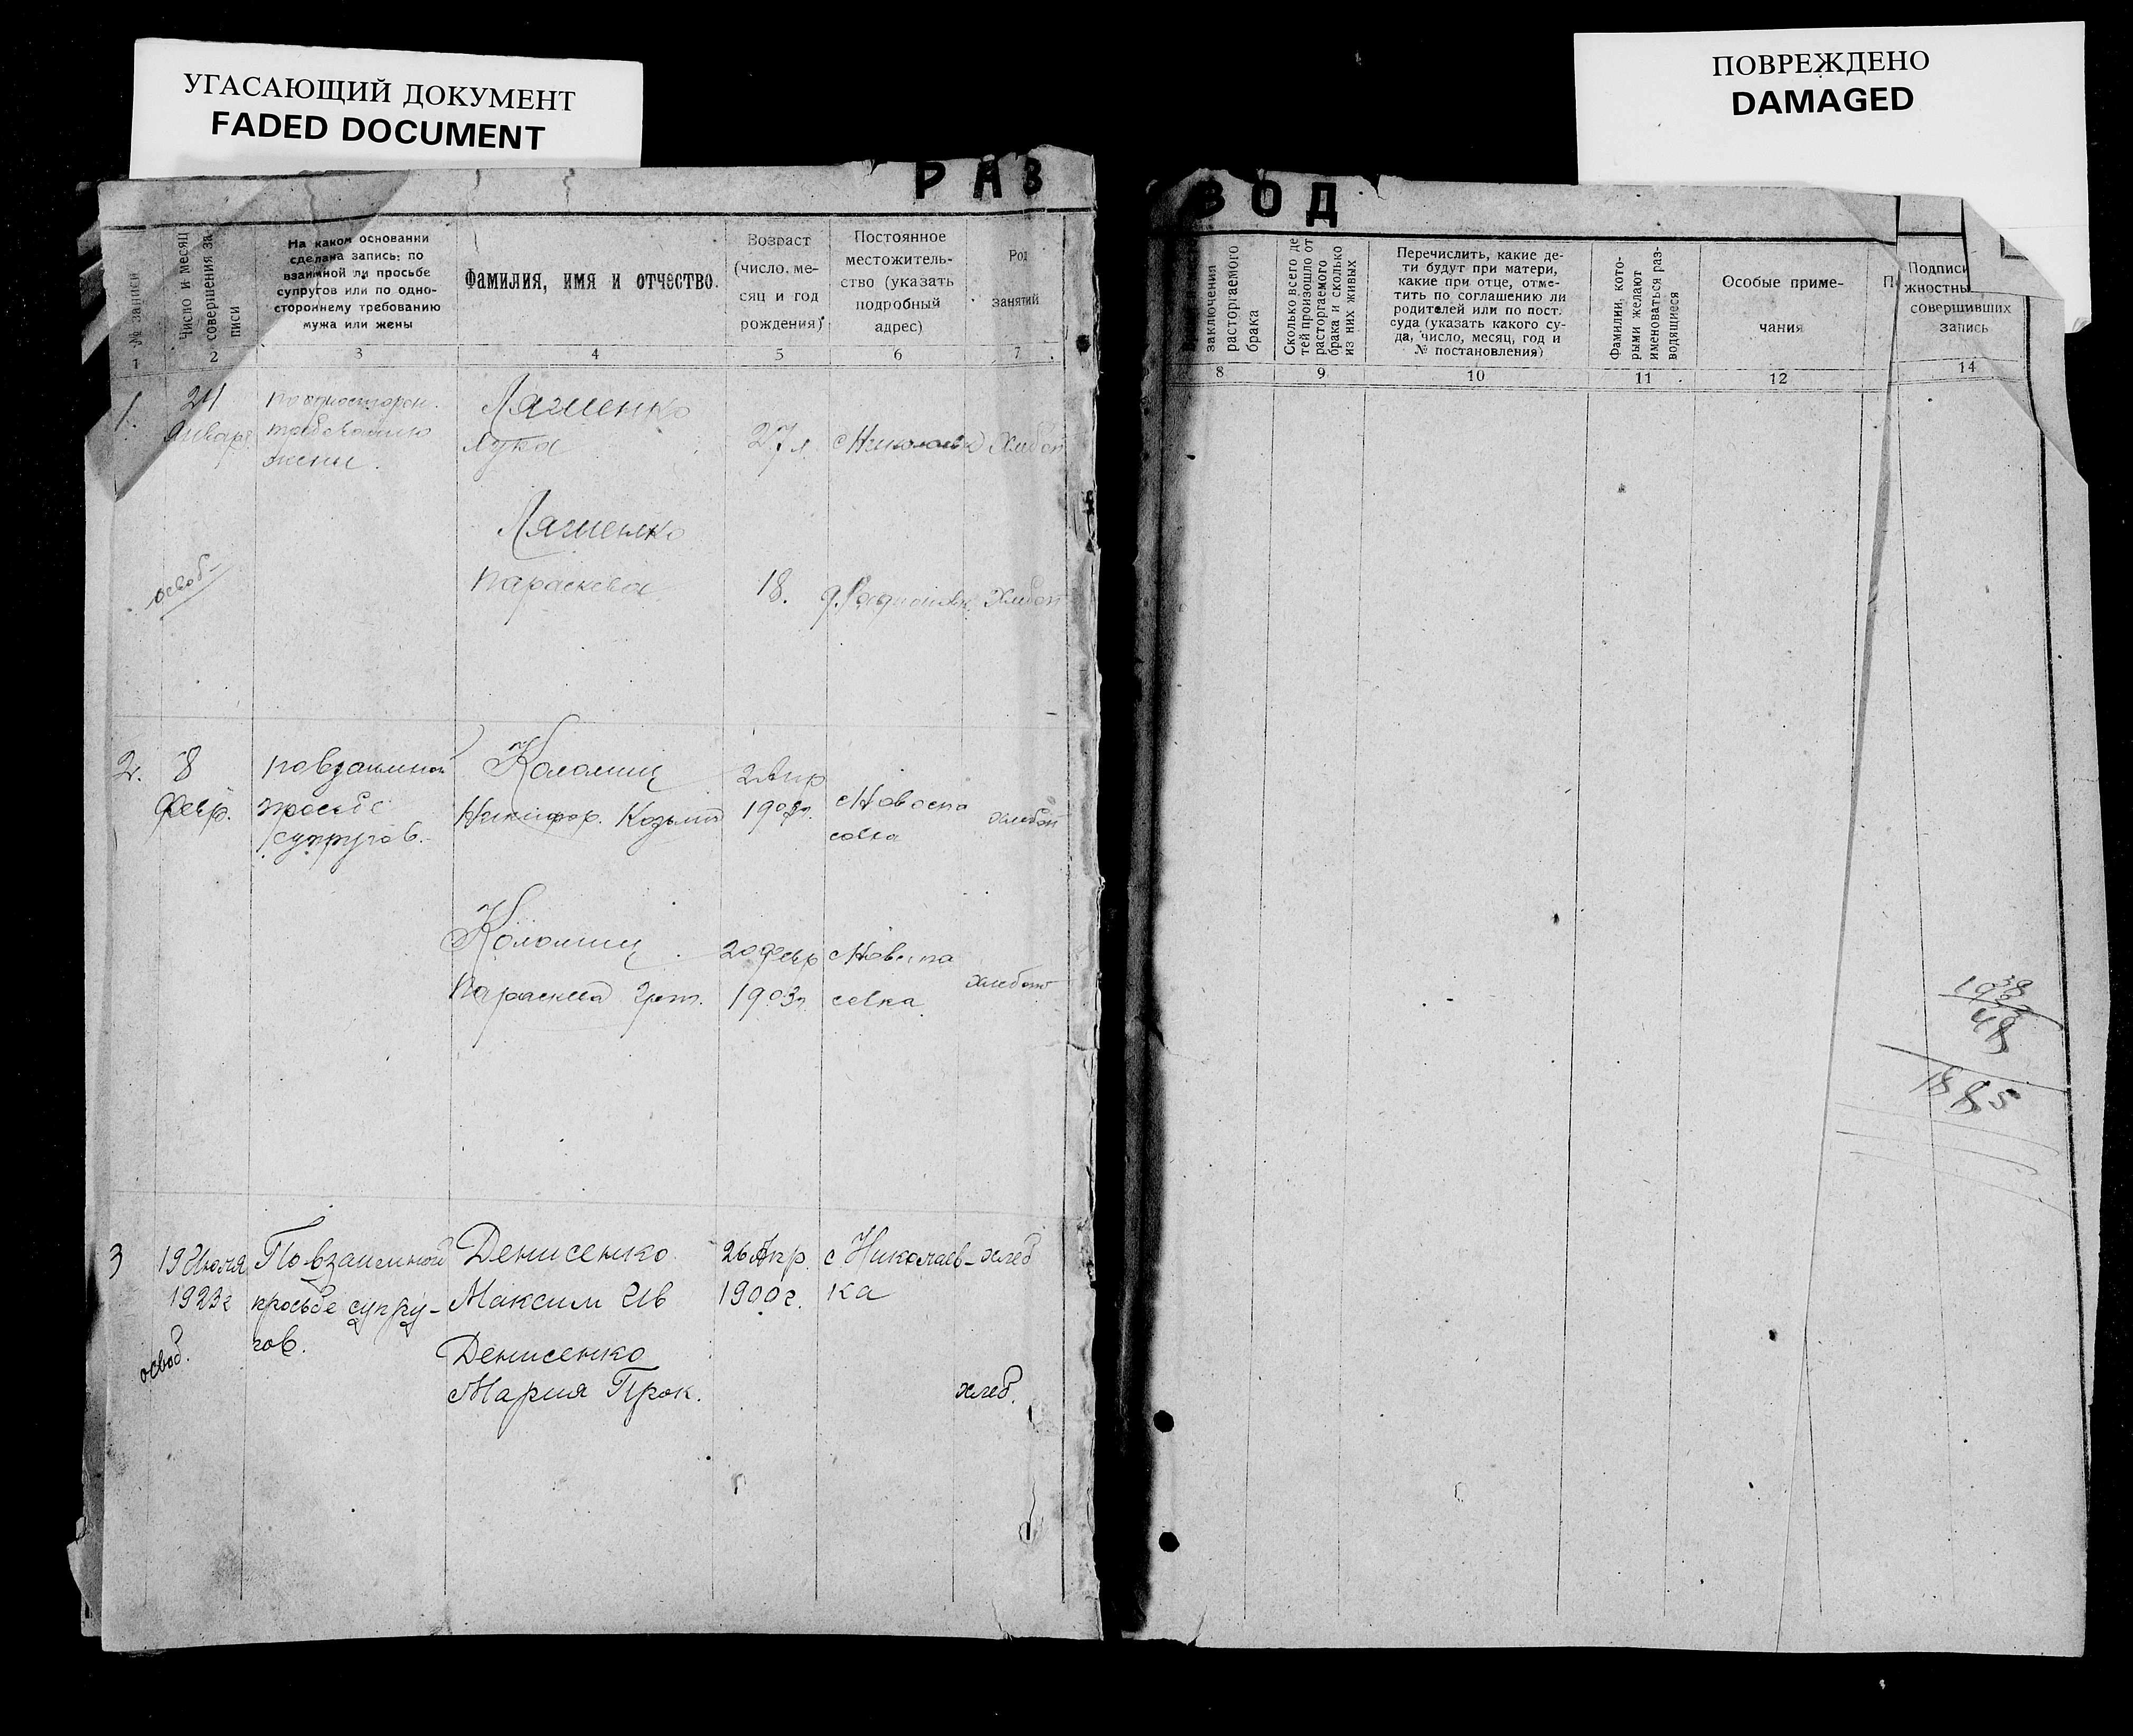 УГАСАЮЩИЙ ДОКУМЕНТ
FADED DOCUMENT
ПОВРЕЖДЕНО
DAMAGED
РАЗ
ВОД
№ записи
Число и месяц
совершения за-
писи
На каком основании
сделана запись: по
взаимной ли просьбе
супругов или по одно-
стороннему требованию
мужа или жены
Фамилия, имя и отчество.
Возраст
(число, ме-
сяц и год
рождения)
Постоянное
местожитель-
ство (указать
подробный
адрес)
Род
занятий
1 2 3 4 5 6 7
заключения
расторгаемого
брака
Сколько всего де
тей произошло от
расторгаемого
брака и сколько
из них живых
Перечислить, какие де-
ти будут при матери,
какие при отце, отме-
тить по соглашению ли
родителей или по пост.
суда (указать какого су-
да, число, месяц, год и
№ постановления)
Фамилии, кото-
рыми желают
именоваться раз-
водящиеся
Особые приме-
чания
Подписи
жностны
совершивших
запись
8 9 10 11 12 14
1.
24
Января
по односторон.
требованию
жены.
Лука
27 л.
Хлебоп
Параскева
18.
Хлебоп
освоб
2.
8
февр.
по взаимной
просьбе
супругов.
Коломиец
Никифор. Козьмич
2 Апр
с Новоспа
совка
хлебоп
Коломиец
Параскева
20 февр
1903 г.
с Новоспа
совка
хлебоп
3
19 Июля
1923 г
По взаимной
просьбе супру-
гов.
освоб.
Денисенко
Максим Ив
26 Апр.
1900 г.
с Николаев-
ка
хлеб
Денисенко
Мария Прок.
хлеб.
48
1885